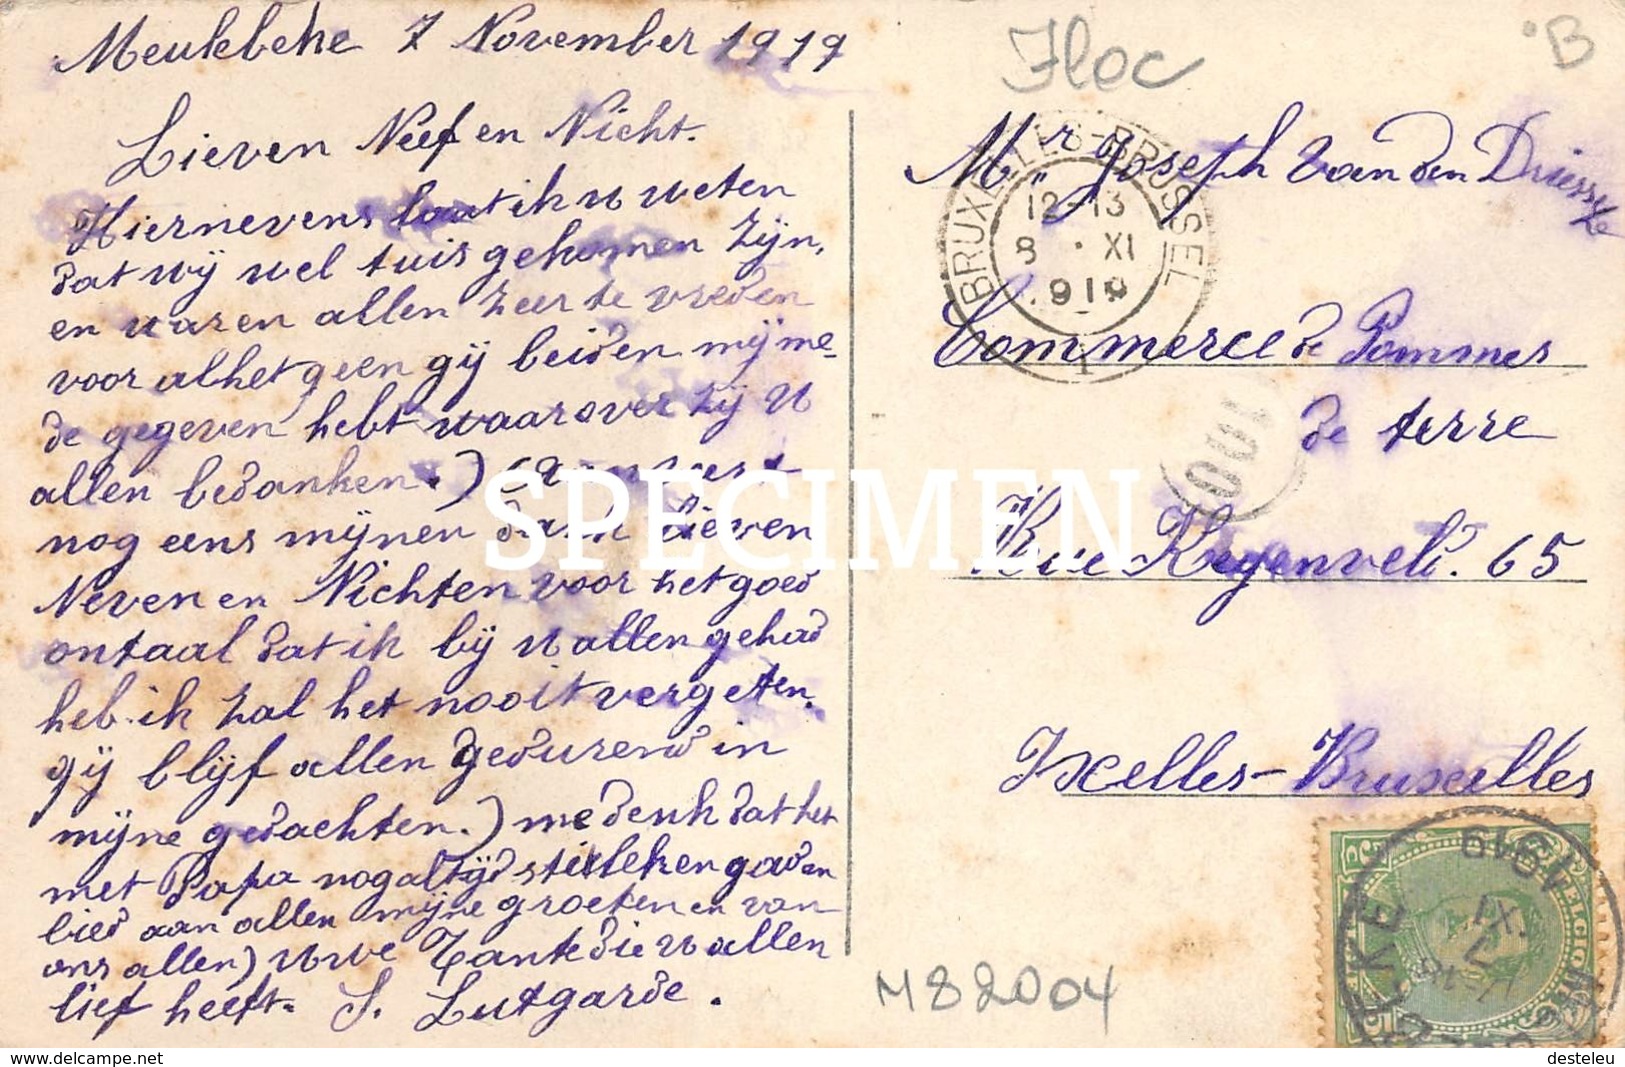 Meulebeke 7 November 1919
Lieven Neef en Nicht.
Hiernevens laat ik u weten
dat wij wel tuis gekomen zijn,
en waren allen zeer te vreden
voor al het geen gij beiden mij me-
de gegeven hebt waarover zij u
allen bedanken.)
nog eens mijnen dank Lieven
Neven en Nichten voor het goed
ontaal dat ik bij u allen gehad
heb. ik zal het nooit vergeten.
gij blijf allen gedurend in
mijne gedachten.) me denk dat het
met Papa nog altijd stilleken
bied aan allen mijne groeten en van
ons allen) uwe Tante die u allen
lief heeft. S. Lutgarde.
Iloc
B
Mr Joseph Van den Driessche
BRUXELLES-BRUSSEL
12-13
8 · XI
1919
1
Commerce de Pommes
de terre
Rue Kegenveld. 65
Ixelles-Bruxelles
1919
7 XI
M82004
SPECIMEN
delcampe.net
desteleu